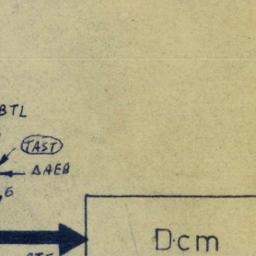 BTL
TAST
ΔAEB
G
D·cm